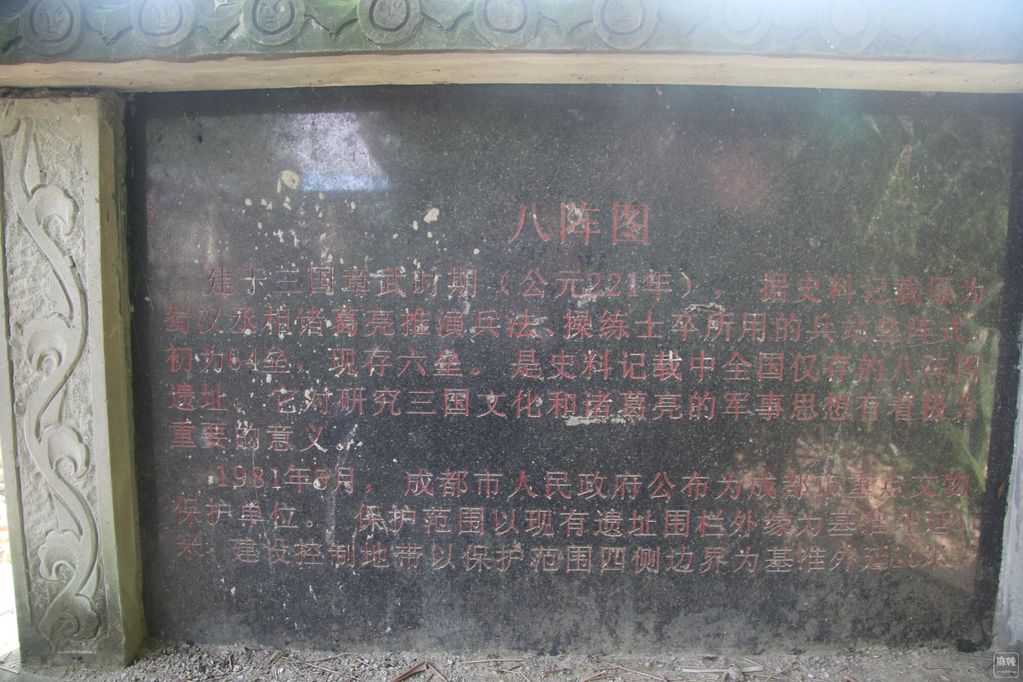 八阵图
建于三国章武时期（公元221年），据史料记载原为
蜀汉丞相诸葛亮推演兵法、操练士卒所用的兵
初为64垒，现存六垒。是史料记载中全国仅存的八阵图
遗址，它对研究三国文化和诸葛亮的军事思想有着极为
重要的意义。
1981年5月，成都市人民政府公布为成都市重点文物
保护单位。保护范围以现有遗址围栏外缘为基准外延
米；建设控制地带以保护范围四侧边界为基准外延10米